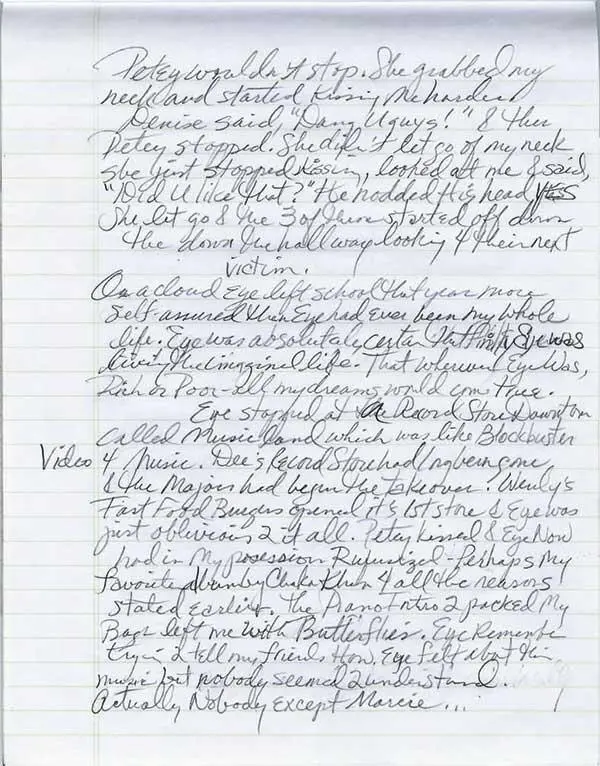 Petey wouldn't stop. She grabbed my
neck and started kissing me harder
Denise said, "Dang U guys!" & then
Petey stopped. She didn't let go of my neck
she just stopped kissin, looked at me & said,
"Did U like that?" He nodded His head yes
She let go & the 3 of them started off down
the down the hallway looking 4 their next
victim.
On a cloud Eye left school that year more
self-assured than Eye had ever been my whole
life. Eye was absolutely certain that Eye was
living the imagined life. That wherever Eye was,
Rich or Poor - all my dreams would come true.
Eye stopped at a Record Store Downtown
called Musicland which was like Blockbuster
Video
4 Music. Dee's Record Store had long been gone
& the Majors had begun the takeover. Wendy's
Fast Food Burgers opened it's 1st store & Eye was
just oblivious 2 it all. Petey kissed & Eye Now
had in My posession Rufusized - Perhaps My
favorite album by Chaka Khan 4 all the reasons
stated earlier. The Piano Intro 2 packed My
Bags left me with Butterflies. Eye Remember
tryin 2 tell my friends How Eye felt about this
music but nobody seemed 2 understand.
Actually Nobody Except Marcie...